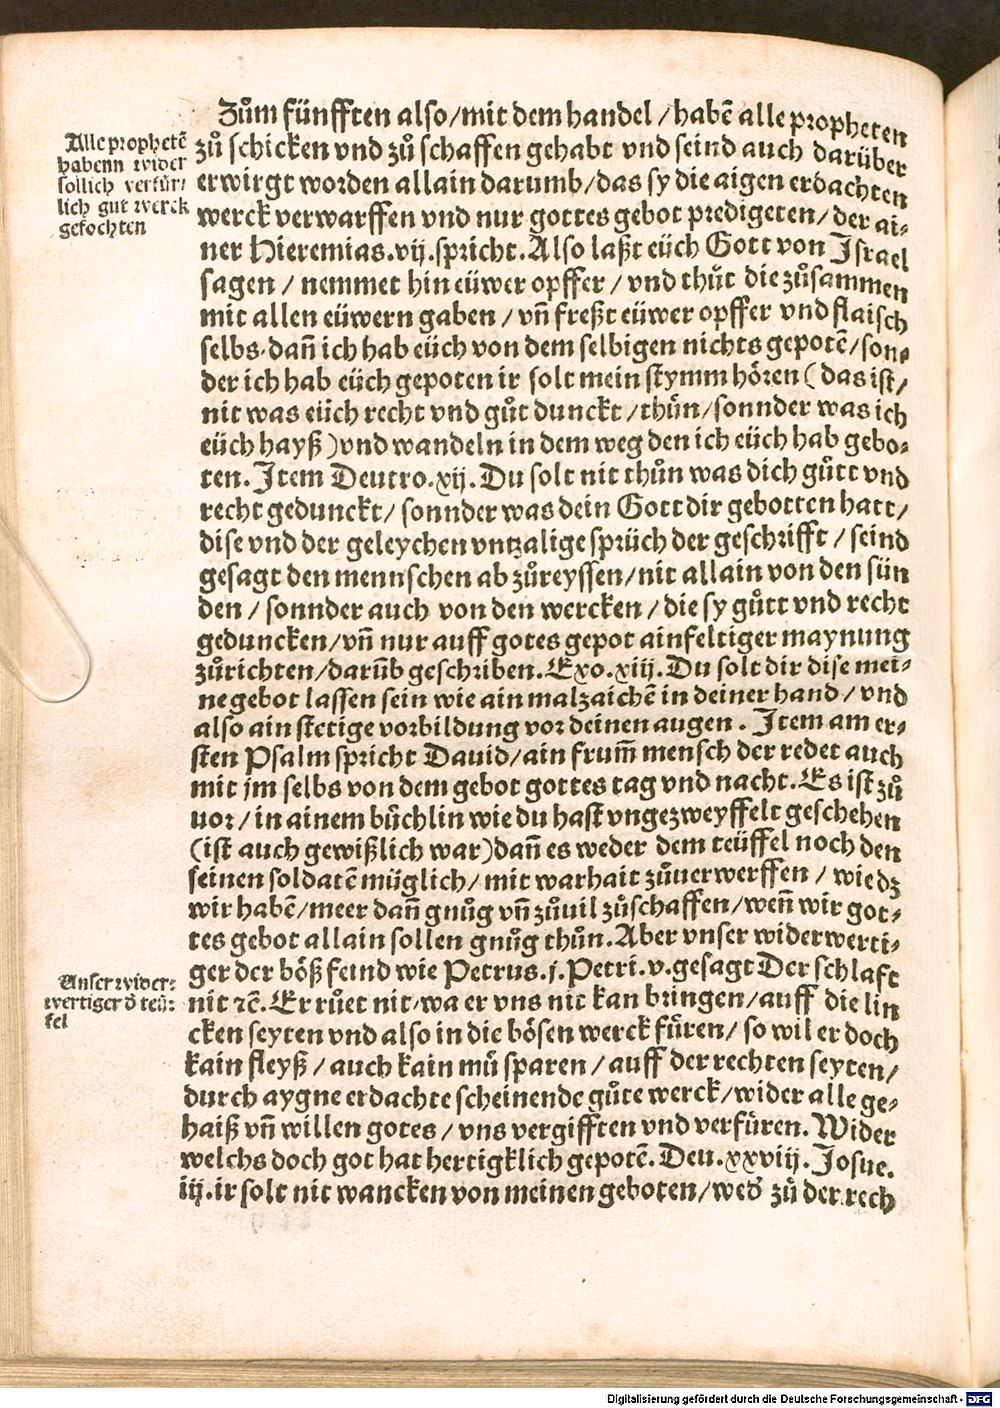 Zům fünfften also/mit dem handel/habē alle propheten
zů schicken vnd zů schaffen gehabt vnd seind auch darüber
erwirgt worden allain darumb/das sy die aigen erdachten
werck verwarffen vnd nur gottes gebot predigeten/der ai-
ner Hieremias.vij.spricht.Also laßt eüch Gott von Israel
sagen/nemmet hin eüwer opffer/vnd thůt die zůsammen
mit allen eüwern gaben/vn̄ freßt eüwer opffer vnd flaisch
selbs.dan̄ ich hab eüch von dem selbigen nichts gepotē/son-
der ich hab eüch gepoten ir solt mein stymm hören(das ist/
nit was eüch recht vnd gůt dunckt/thůn/sonnder was ich
eüch hayß)vnd wandeln in dem weg den ich eüch hab gebo-
ten.Item Deutro.xij.Du solt nit thůn was dich gůtt vnd
recht gedunckt/sonnder was dein Gott dir gebotten hatt/
dise vnd der geleychen vntzalige sprüch der geschrifft/seind
gesagt den mennschen ab zůreyssen/nit allain von den sün
den/sonnder auch von den wercken/die sy gůtt vnd recht
geduncken/vn̄ nur auff gotes gepot ainfeltiger maynung
zůrichten/darūb geschriben.Exo.xiij.Du solt dir dise mei-
ne gebot lassen sein wie ain malzaichē in deiner hand/vnd
also ain stetige vorbildung vor deinen augen.Item am er-
sten Psalm spricht Dauid/ain frum̄ mensch der redet auch
mit jm selbs von dem gebot gottes tag vnd nacht.Es ist zů
uor/in ainem büchlin wie du hast vngezweyffelt geschehen
(ist auch gewißlich war)dan̄ es weder dem teüffel noch den
seinen soldatē müglich/mit warhait zůuerwerffen/wie dz
wir habē/meer dan̄ gnůg vn̄ zůuil zůschaffen/wen̄ wir got-
tes gebot allain sollen gnůg thůn.Aber vnser widerwerti-
ger der böß feind wie Petrus.j.Petri.v.gesagt Der schlaft
nit ⁊c̄.Er růet nit/wa er vns nit kan bringen/auff die lin
cken seyten vnd also in die bösen werck füren/so wil er doch
kain fleyß/auch kain mů sparen/auff der rechten seyten/
durch aygne erdachte scheinende gůte werck/wider alle ge-
haiß vn̄ willen gotes/vns vergifften vnd verfüren.Wider
welchs doch got hat hertigklich gepotē.Deu.xxviij.Josue.
iij.ir solt nit wancken von meinen geboten/wed̄ zů der rech
Alle prophetē
habenn wider
sollich verfür-
lich gut werck
gefochten
Vnser wider-
wertiger d̄ teü-
fel
Digitalisierung gefördert durch die Deutsche Forschungsgemeinschaft - DFG